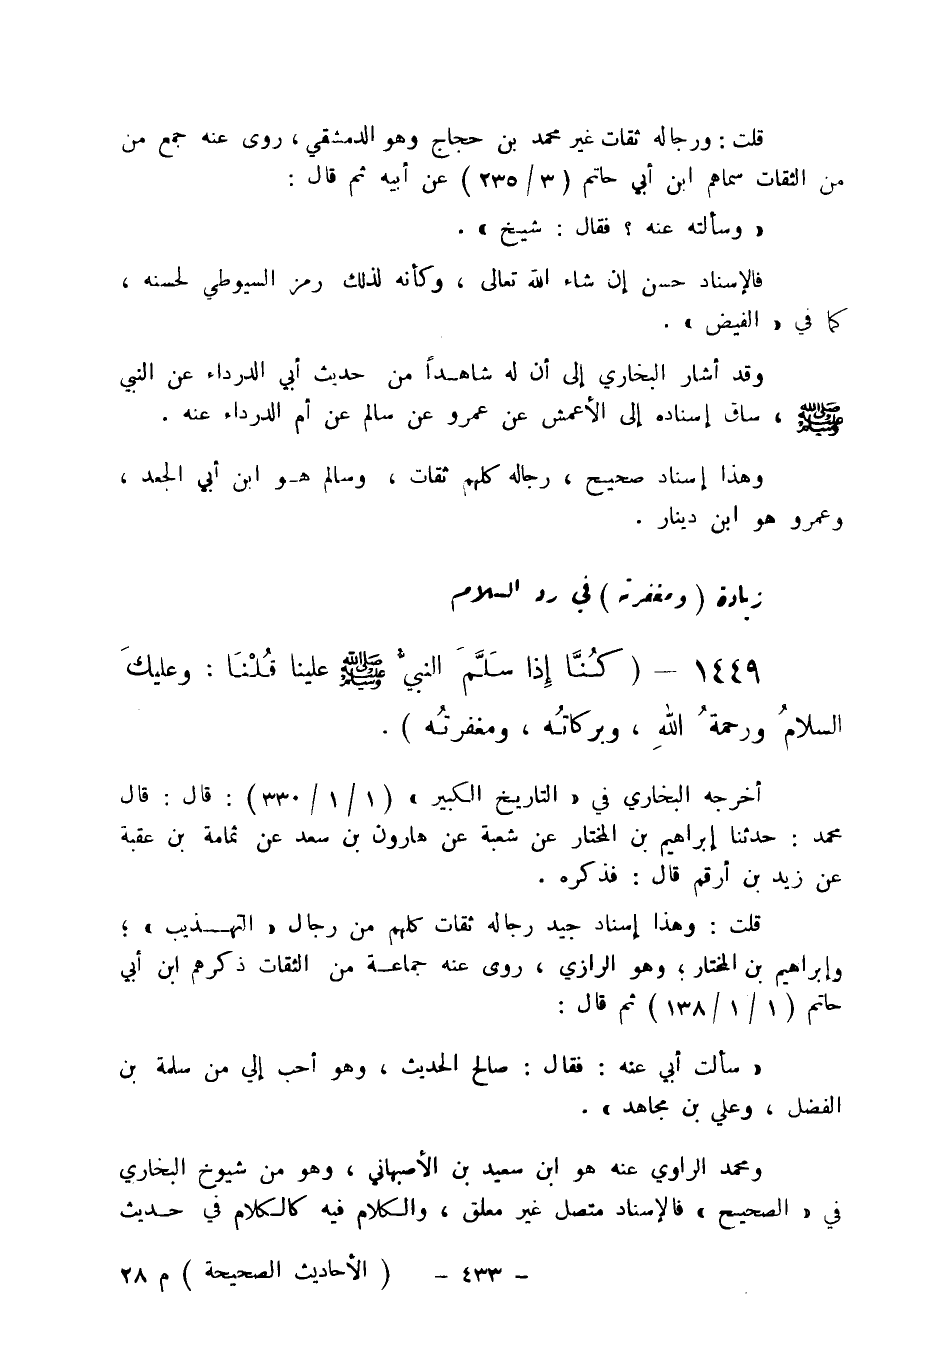 قلت : ورجاله ثقات غير محمد بن حجاج وهو الدمشقي ، روى عنه جمع من
من الثقات سماهم ابن أبي حاتم ( ٣ / ٢٣٥ ) عن أبيه ثم قال :
« وسألته عنه ؟ فقال : شيخ » .
فالإسناد حسن إن شاء الله تعالى ، وكأنه لذلك رمز السيوطي لحسنه ،
كما في « الفيض » .
وقد أشار البخاري إلى أن له شاهداً من حديث أبي الدرداء عن النبي
ﷺ ، ساق إسناده إلى الأعمش عن عمرو عن سالم عن أم الدرداء عنه .
وهذا إسناد صحيح ، رجاله كلهم ثقات ، وسالم هو ابن أبي الجعد ،
وعمرو هو ابن دينار .
زيادة ( ومغفرته ) في رد السلام
١٤٤٩ – ( كُنَّا إِذا سَلَّمَ النبيُّ ﷺ علينا قُلْنَا : وعليكَ
السلامُ ورحمةُ اللهِ ، وبركاتُه ، ومغفرتُه ) .
أخرجه البخاري في « التاريخ الكبير » ( ١ / ١ / ٣٣٠ ) : قال : قال
محمد : حدثنا إبراهيم بن المختار عن شعبة عن هارون بن سعد عن ثمامة بن عقبة
عن زيد بن أرقم قال : فذكره .
قلت : وهذا إسناد جيد رجاله ثقات كلهم من رجال « التهذيب » ؛
وإبراهيم بن المختار ؛ وهو الرازي ، روى عنه جماعة من الثقات ذكرهم ابن أبي
حاتم ( ١ / ١ / ١٣٨ ) ثم قال :
« سألت أبي عنه : فقال : صالح الحديث ، وهو أحب إلي من سلمة بن
الفضل ، وعلي بن مجاهد » .
ومحمد الراوي عنه هو ابن سعيد بن الأصبهاني ، وهو من شيوخ البخاري
في « الصحيح » فالإسناد متصل غير معلق ، والكلام فيه كالكلام في حديث
– ٤٣٣ – ( الأحاديث الصحيحة ) م ٢٨